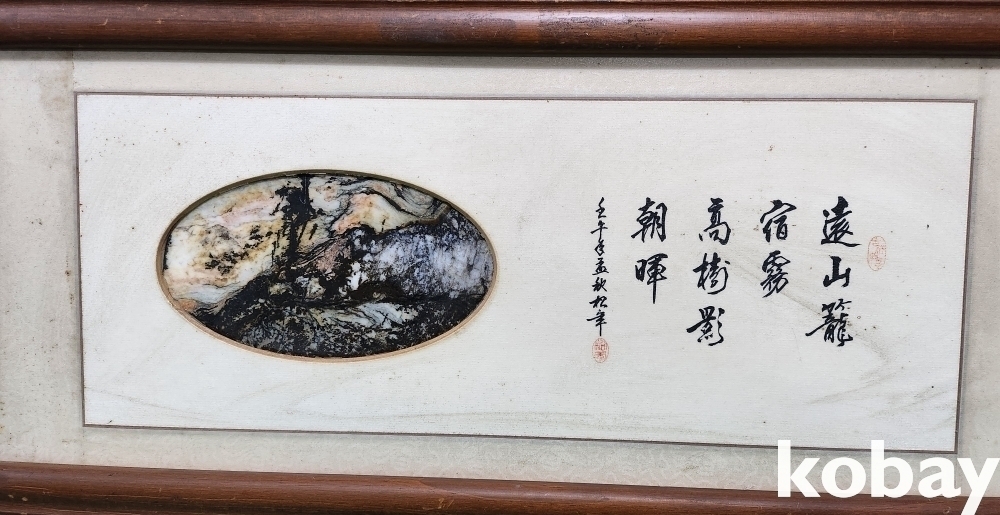 遠山籠
宿霧
高樹影
朝暉
壬午年孟秋松年
kobay